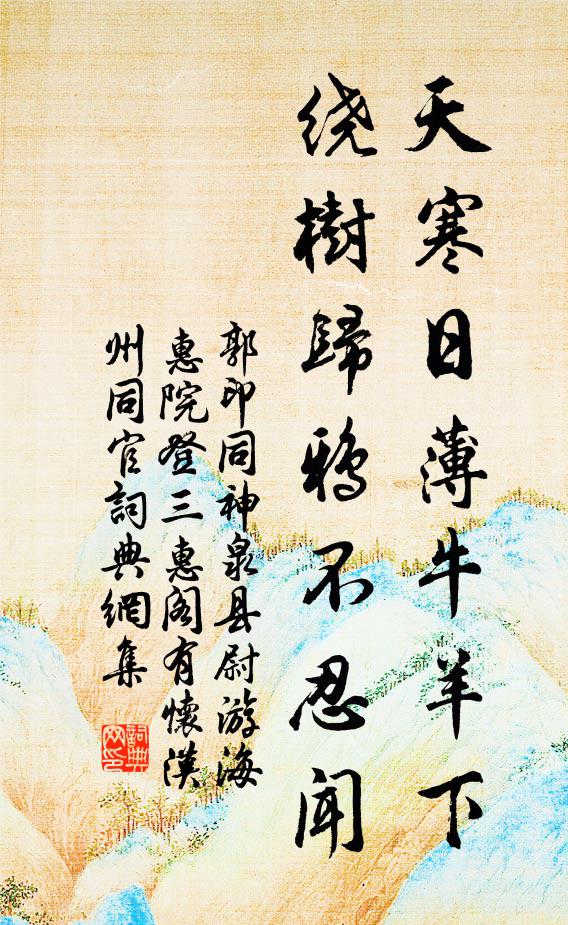 天寒日薄牛羊下
绕樹歸鴉不忍聞
郭印同神泉县尉游海
惠院登三惠阁有懷漢
州同官詞典網集
詞典
网印